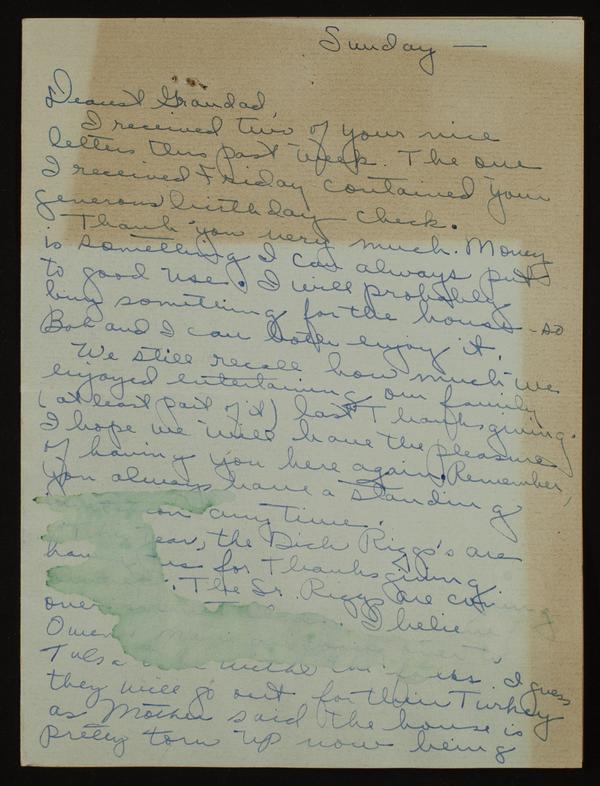 Sunday —
Dearest Grandad,
I received two of your nice
letters this past week. The one
I received Friday contained your
generous birthday check.
Thank you very much. Money
is something I can always put
to good use. I will probably
buy something for the house - so
Bob and I can both enjoy it.
We still recall how much we
enjoyed entertaining our family
(at least part of it) last Thanksgiving.
I hope we will have the pleasure
of having you here again. Remember,
you always have a standing
on any time.
the Dick Riggs's are
for Thanksgiving
. The Sr. Riggs are coming
over I believe
Tulsa I guess
they will go out for their Turkey
as Mother said the house is
pretty torn up now being